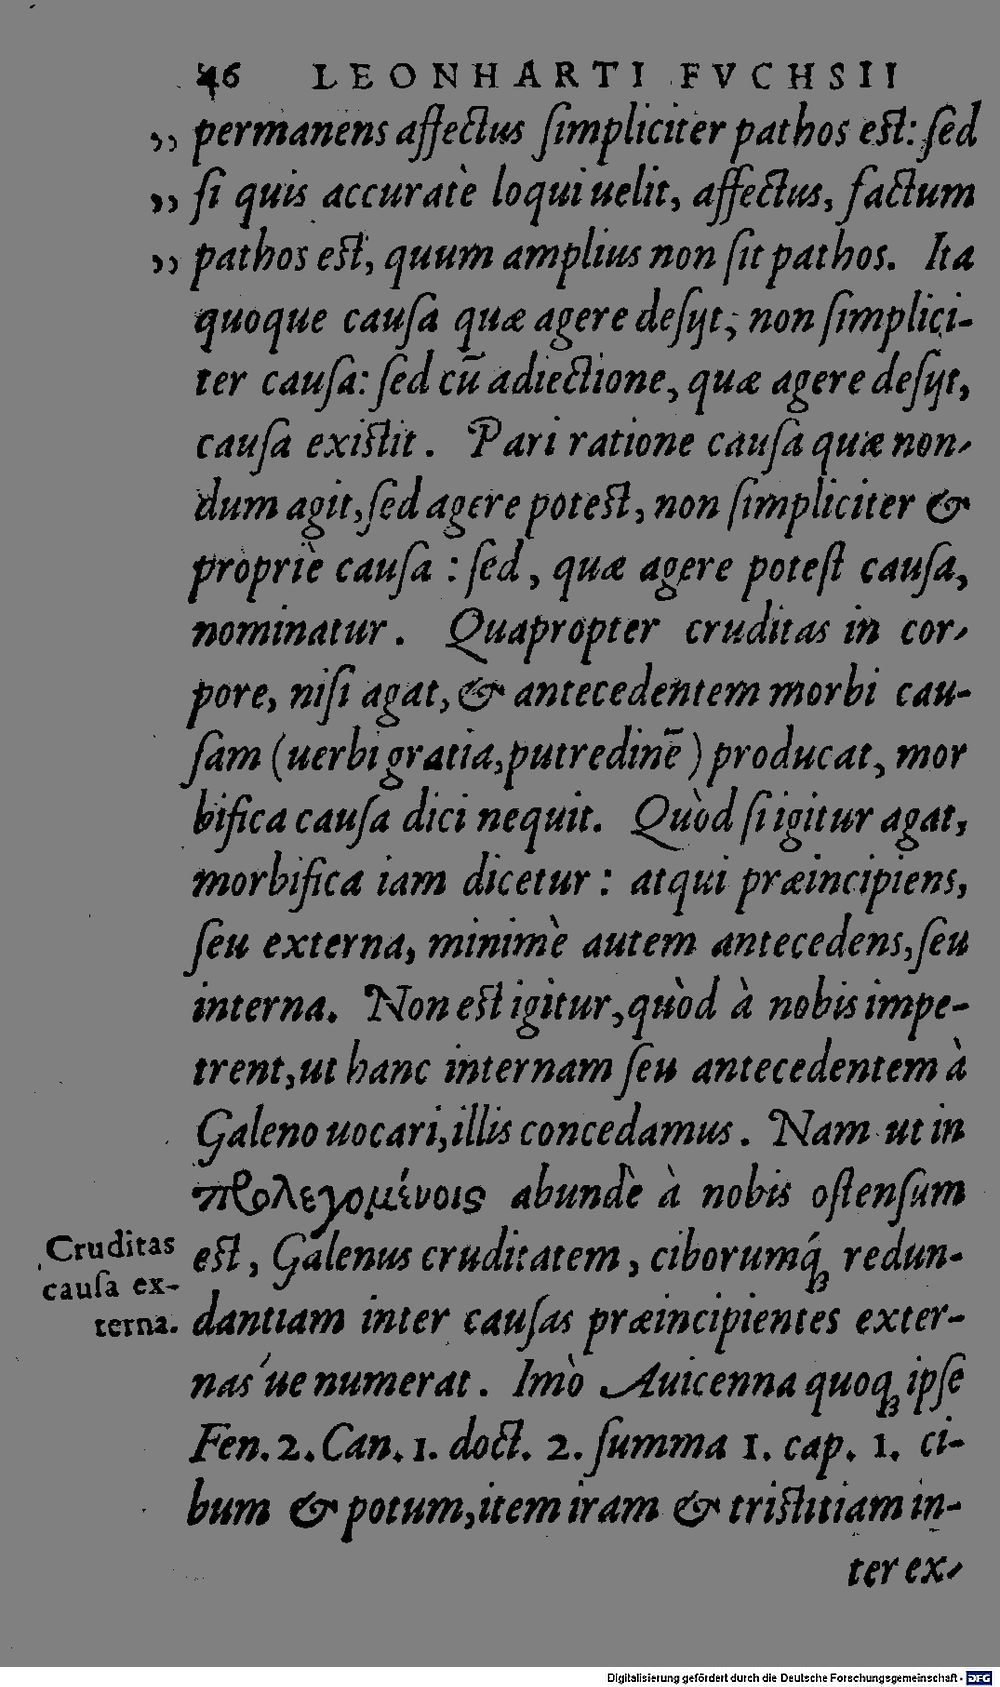 46 LEONHARTI FVCHSII
,, permanens affectus ſimpliciter pathos eſt: ſed
,, ſi quis accuratè loqui uelit, affectus, factum
,, pathos eſt, quum amplius non ſit pathos. Ita
quoque cauſa quæ agere deſijt, non ſimplici-
ter cauſa: ſed cū adiectione, quæ agere deſijt,
cauſa exiſtit. Pari ratione cauſa quæ non-
dum agit, ſed agere poteſt, non ſimpliciter &
propriè cauſa: ſed, quæ agere poteſt cauſa,
nominatur. Quapropter cruditas in cor-
pore, niſi agat, & antecedentem morbi cau-
ſam (uerbi gratia, putredinē) producat, mor
bifica cauſa dici nequit. Quòd ſi igitur agat,
morbifica iam dicetur: atqui præincipiens,
ſeu externa, minimè autem antecedens, ſeu
interna. Non eſt igitur, quòd à nobis impe-
trent, ut hanc internam ſeu antecedentem à
Galeno uocari, illis concedamus. Nam ut in
προλεγομένοις abundè à nobis oſtenſum
eſt, Galenus cruditatem, ciborumq́; redun-
dantiam inter cauſas præincipientes exter-
nas ́ue numerat. Imò Auicenna quoq; ipſe
Fen. 2. Can. 1. doct. 2. ſumma 1. cap. 1. ci-
bum & potum, item iram & triſtitiam in-
ter ex-
Cruditas
cauſa ex-
terna.
Digitalisierung gefördert durch die Deutsche Forschungsgemeinschaft - DFG